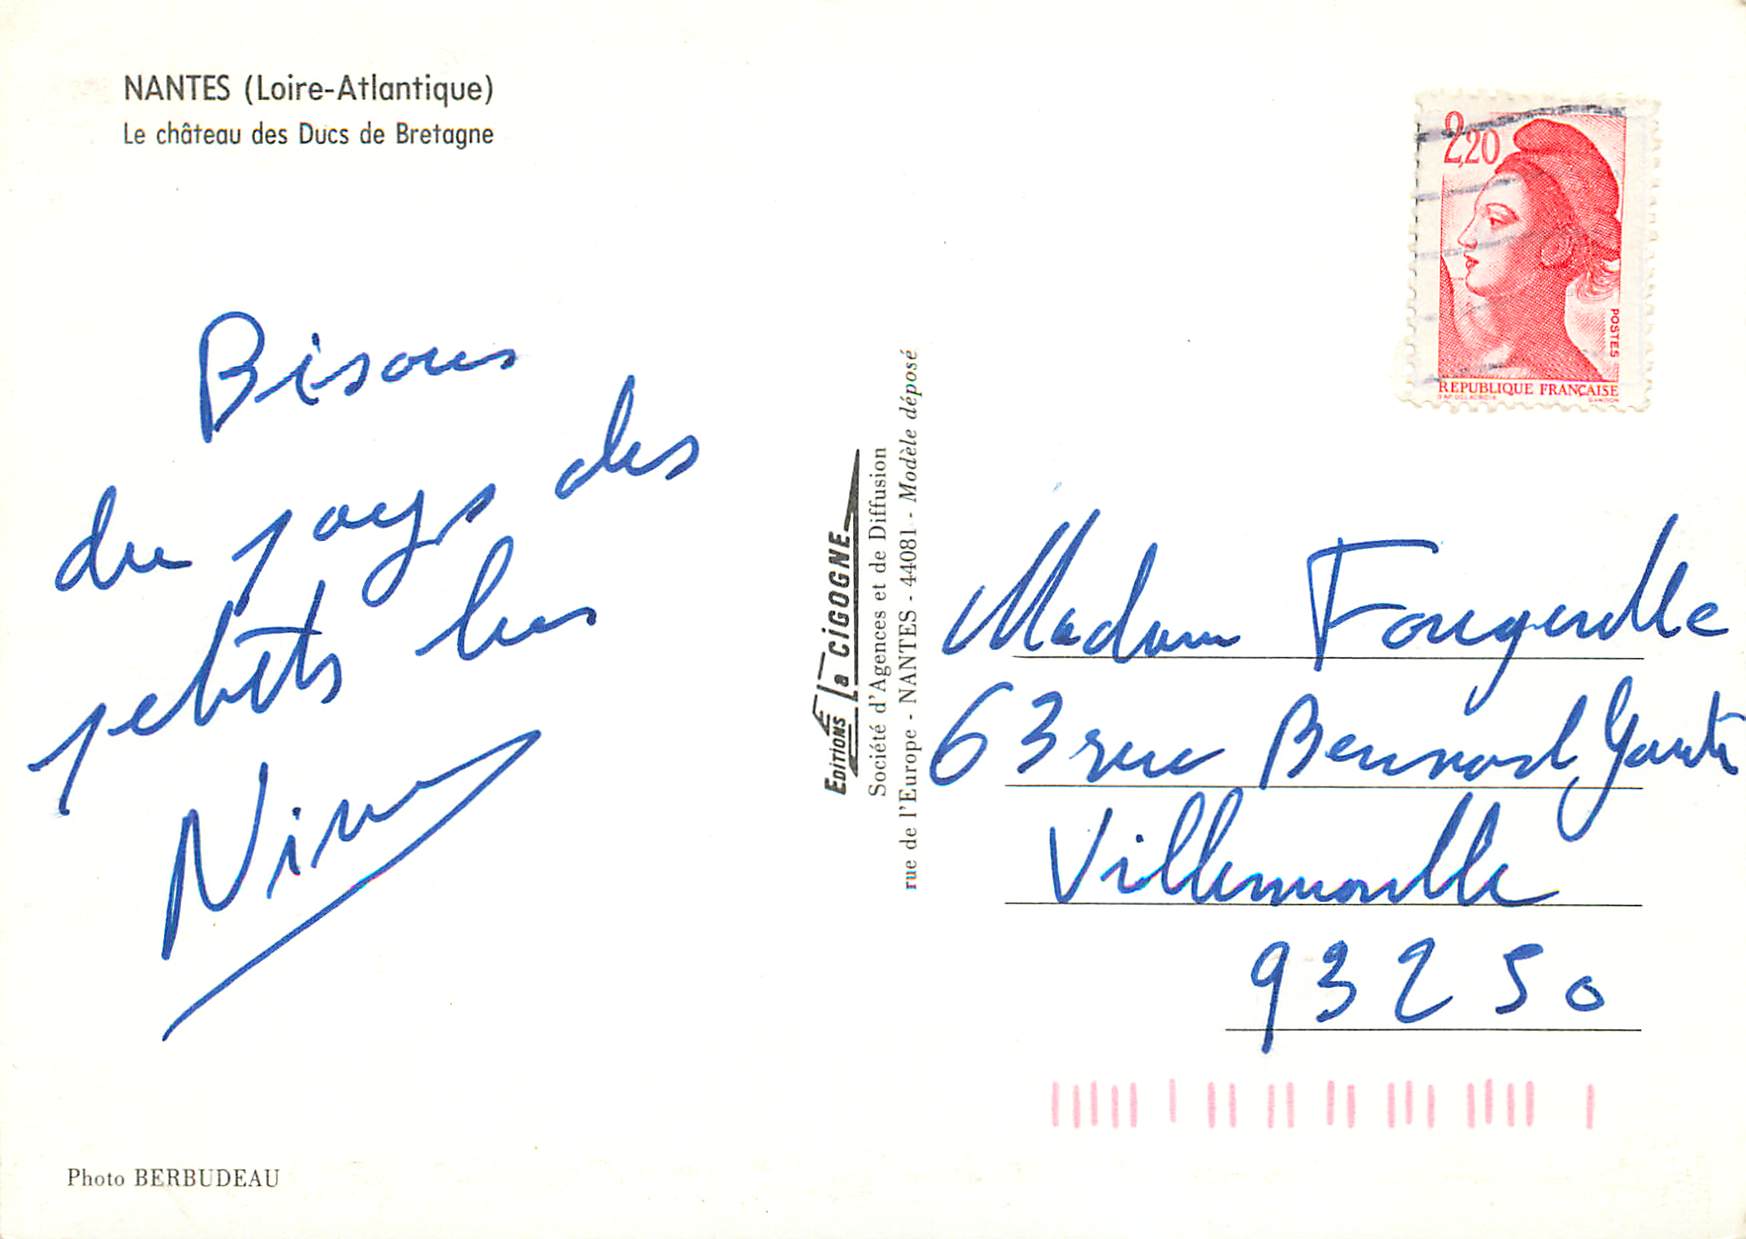 NANTES (Loire-Atlantique)
Le château des Ducs de Bretagne
Bisous
du pays des
petits lus
Nina
Photo BERBUDEAU
EDITIONS La CIGOGNE
Société d'Agences et de Diffusion
rue de l'Europe - NANTES - 44081 - Modèle déposé
2,20
POSTES
REPUBLIQUE FRANÇAISE
Madame Fougerolle
63 rue Bernard Gante
Villemomble
93250